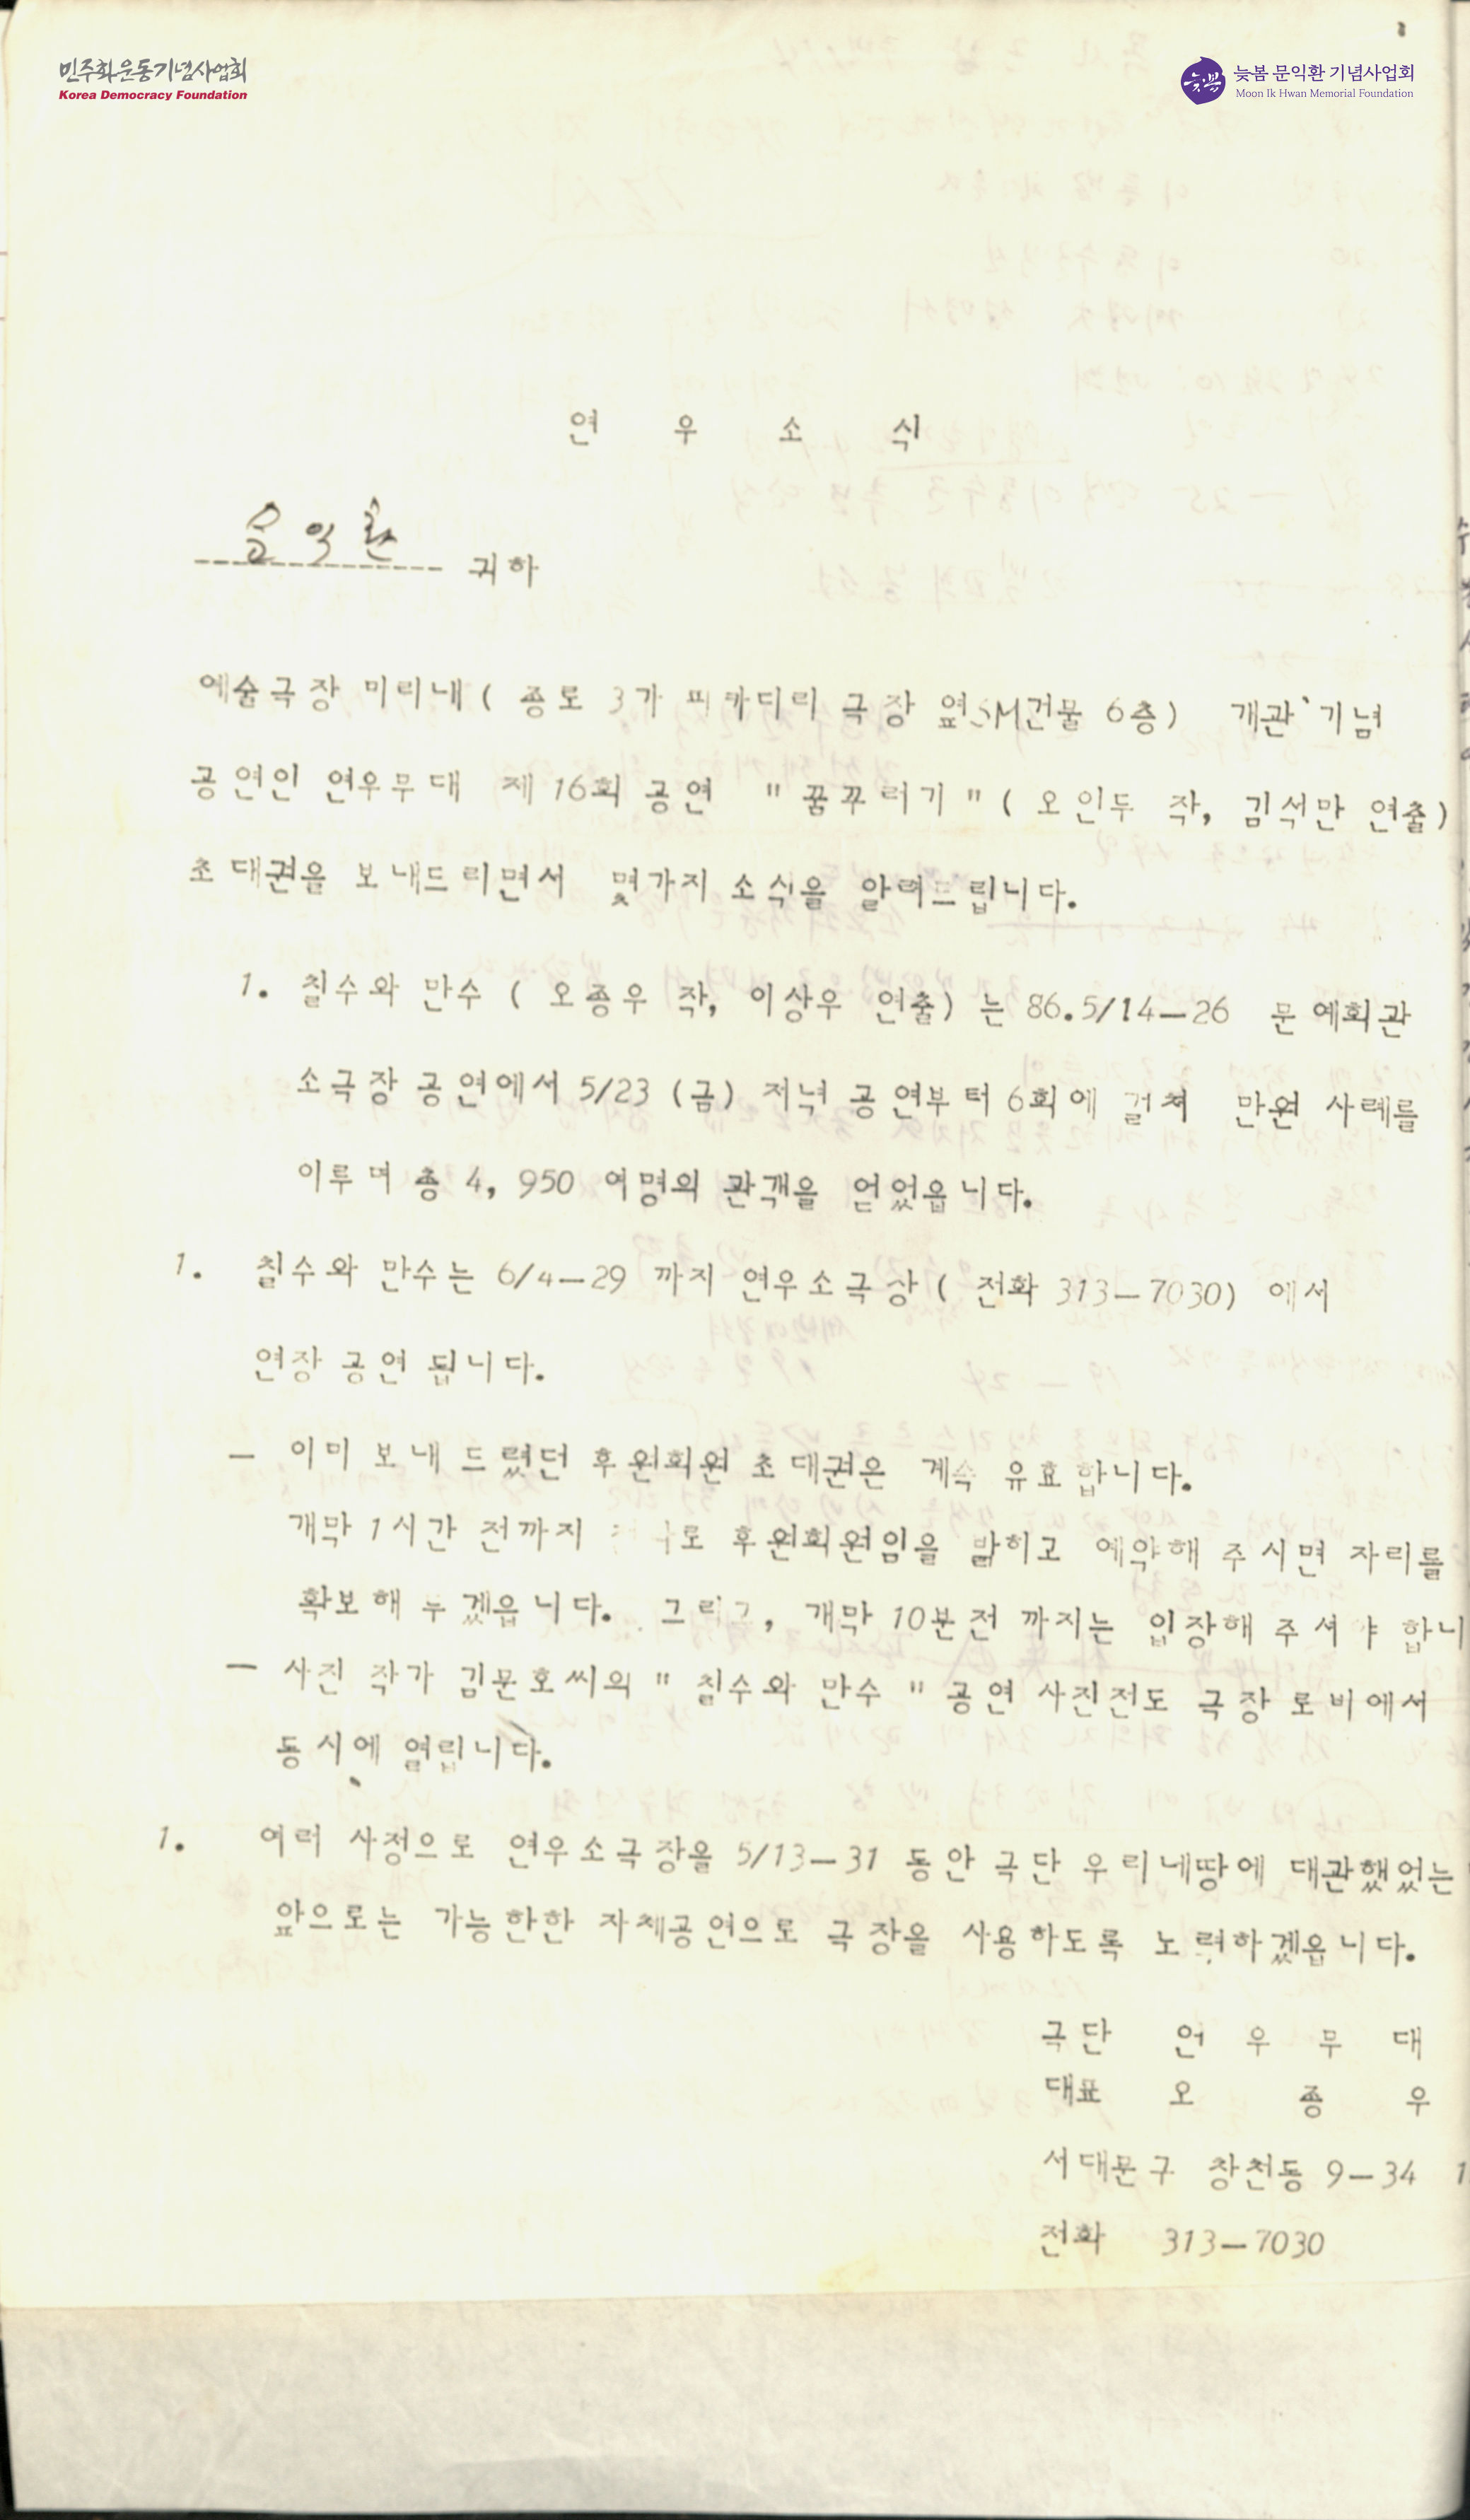 민주화운동기념사업회
Korea Democracy Foundation
늦봄
늦봄 문익환 기념사업회
Moon Ik Hwan Memorial Foundation
연 우 소 식
문익환 귀하
예술극장 미리내 ( 종로 3가 피카디리 극장 옆SM건물 6층) 개관 기념
공연인 연우무대 제 16회 공연 " 꿈꾸러기 " ( 오인두 작, 김석만 연출)
초대권을 보내드리면서 몇가지 소식을 알려드립니다.
1. 칠수와 만수 ( 오종우 작, 이상우 연출) 는 86.5/14-26 문예회관
소극장 공연에서 5/23 (금) 저녁 공연부터 6회에 걸쳐 만원 사례를
이루며 총 4, 950 여명의 관객을 얻었읍니다.
1. 칠수와 만수는 6/4-29 까지 연우소극장 ( 전화 313-7030) 에서
연장 공연 됩니다.
- 이미 보내 드렸던 후원회원 초대권은 계속 유효합니다.
개막 1시간 전까지 후원회원임을 밝히고 예약해 주시면 자리를
확보해 두겠읍니다. 그리고, 개막 10분전 까지는 입장해 주셔야 합니
- 사진 작가 김문호씨의 " 칠수와 만수 " 공연 사진전도 극장 로비에서
동시에 열립니다.
1. 여러 사정으로 연우소극장을 5/13-31 동안 극단 우리네땅에 대관했었는
앞으로는 가능한한 자체공연으로 극장을 사용하도록 노력하겠읍니다.
극단 연 우 무 대
대표 오 종 우
서대문구 창천동 9-34 1
전화 313-7030